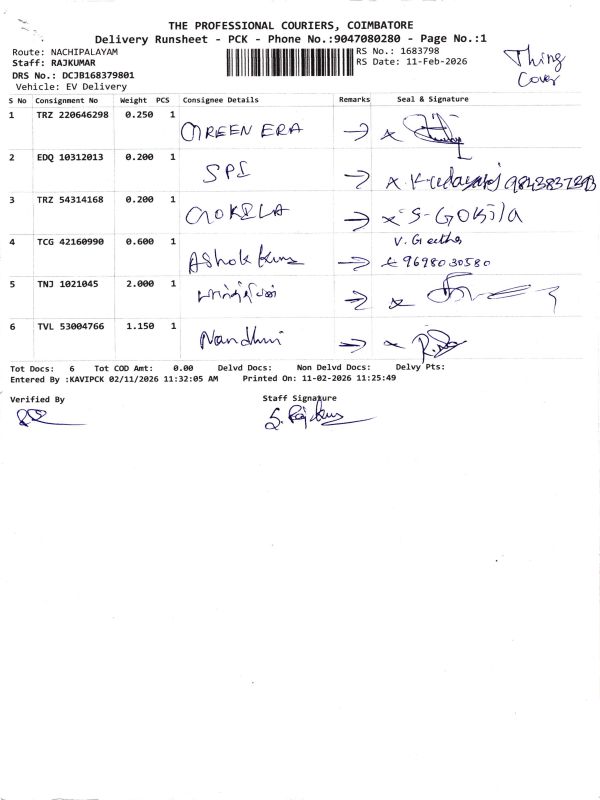 THE PROFESSIONAL COURIERS, COIMBATORE
Delivery Runsheet - PCK - Phone No.:9047080280 - Page No.:1
Route: NACHIPALAYAM
RS No.: 1683798
Staff: RAJKUMAR
RS Date: 11-Feb-2026
DRS No.: DCJB168379801
Vehicle: EV Delivery
Thing
Cover
S No Consignment No Weight PCS Consignee Details Remarks Seal & Signature
1 TRZ 220646298 0.250 1 GREEN ERA
2 EDQ 10312013 0.200 1 SPI
3 TRZ 54314168 0.200 1 GOKILA → x S-GOKila
4 TCG 42160990 0.600 1 Ashok Kumar → V. Geetha
9698030580
5 TNJ 1021045 2.000 1
6 TVL 53004766 1.150 1 Nandhini
Tot Docs: 6 Tot COD Amt: 0.00 Delvd Docs: Non Delvd Docs: Delvy Pts:
Entered By :KAVIPCK 02/11/2026 11:32:05 AM Printed On: 11-02-2026 11:25:49
Verified By Staff Signature
S. Rajkumar